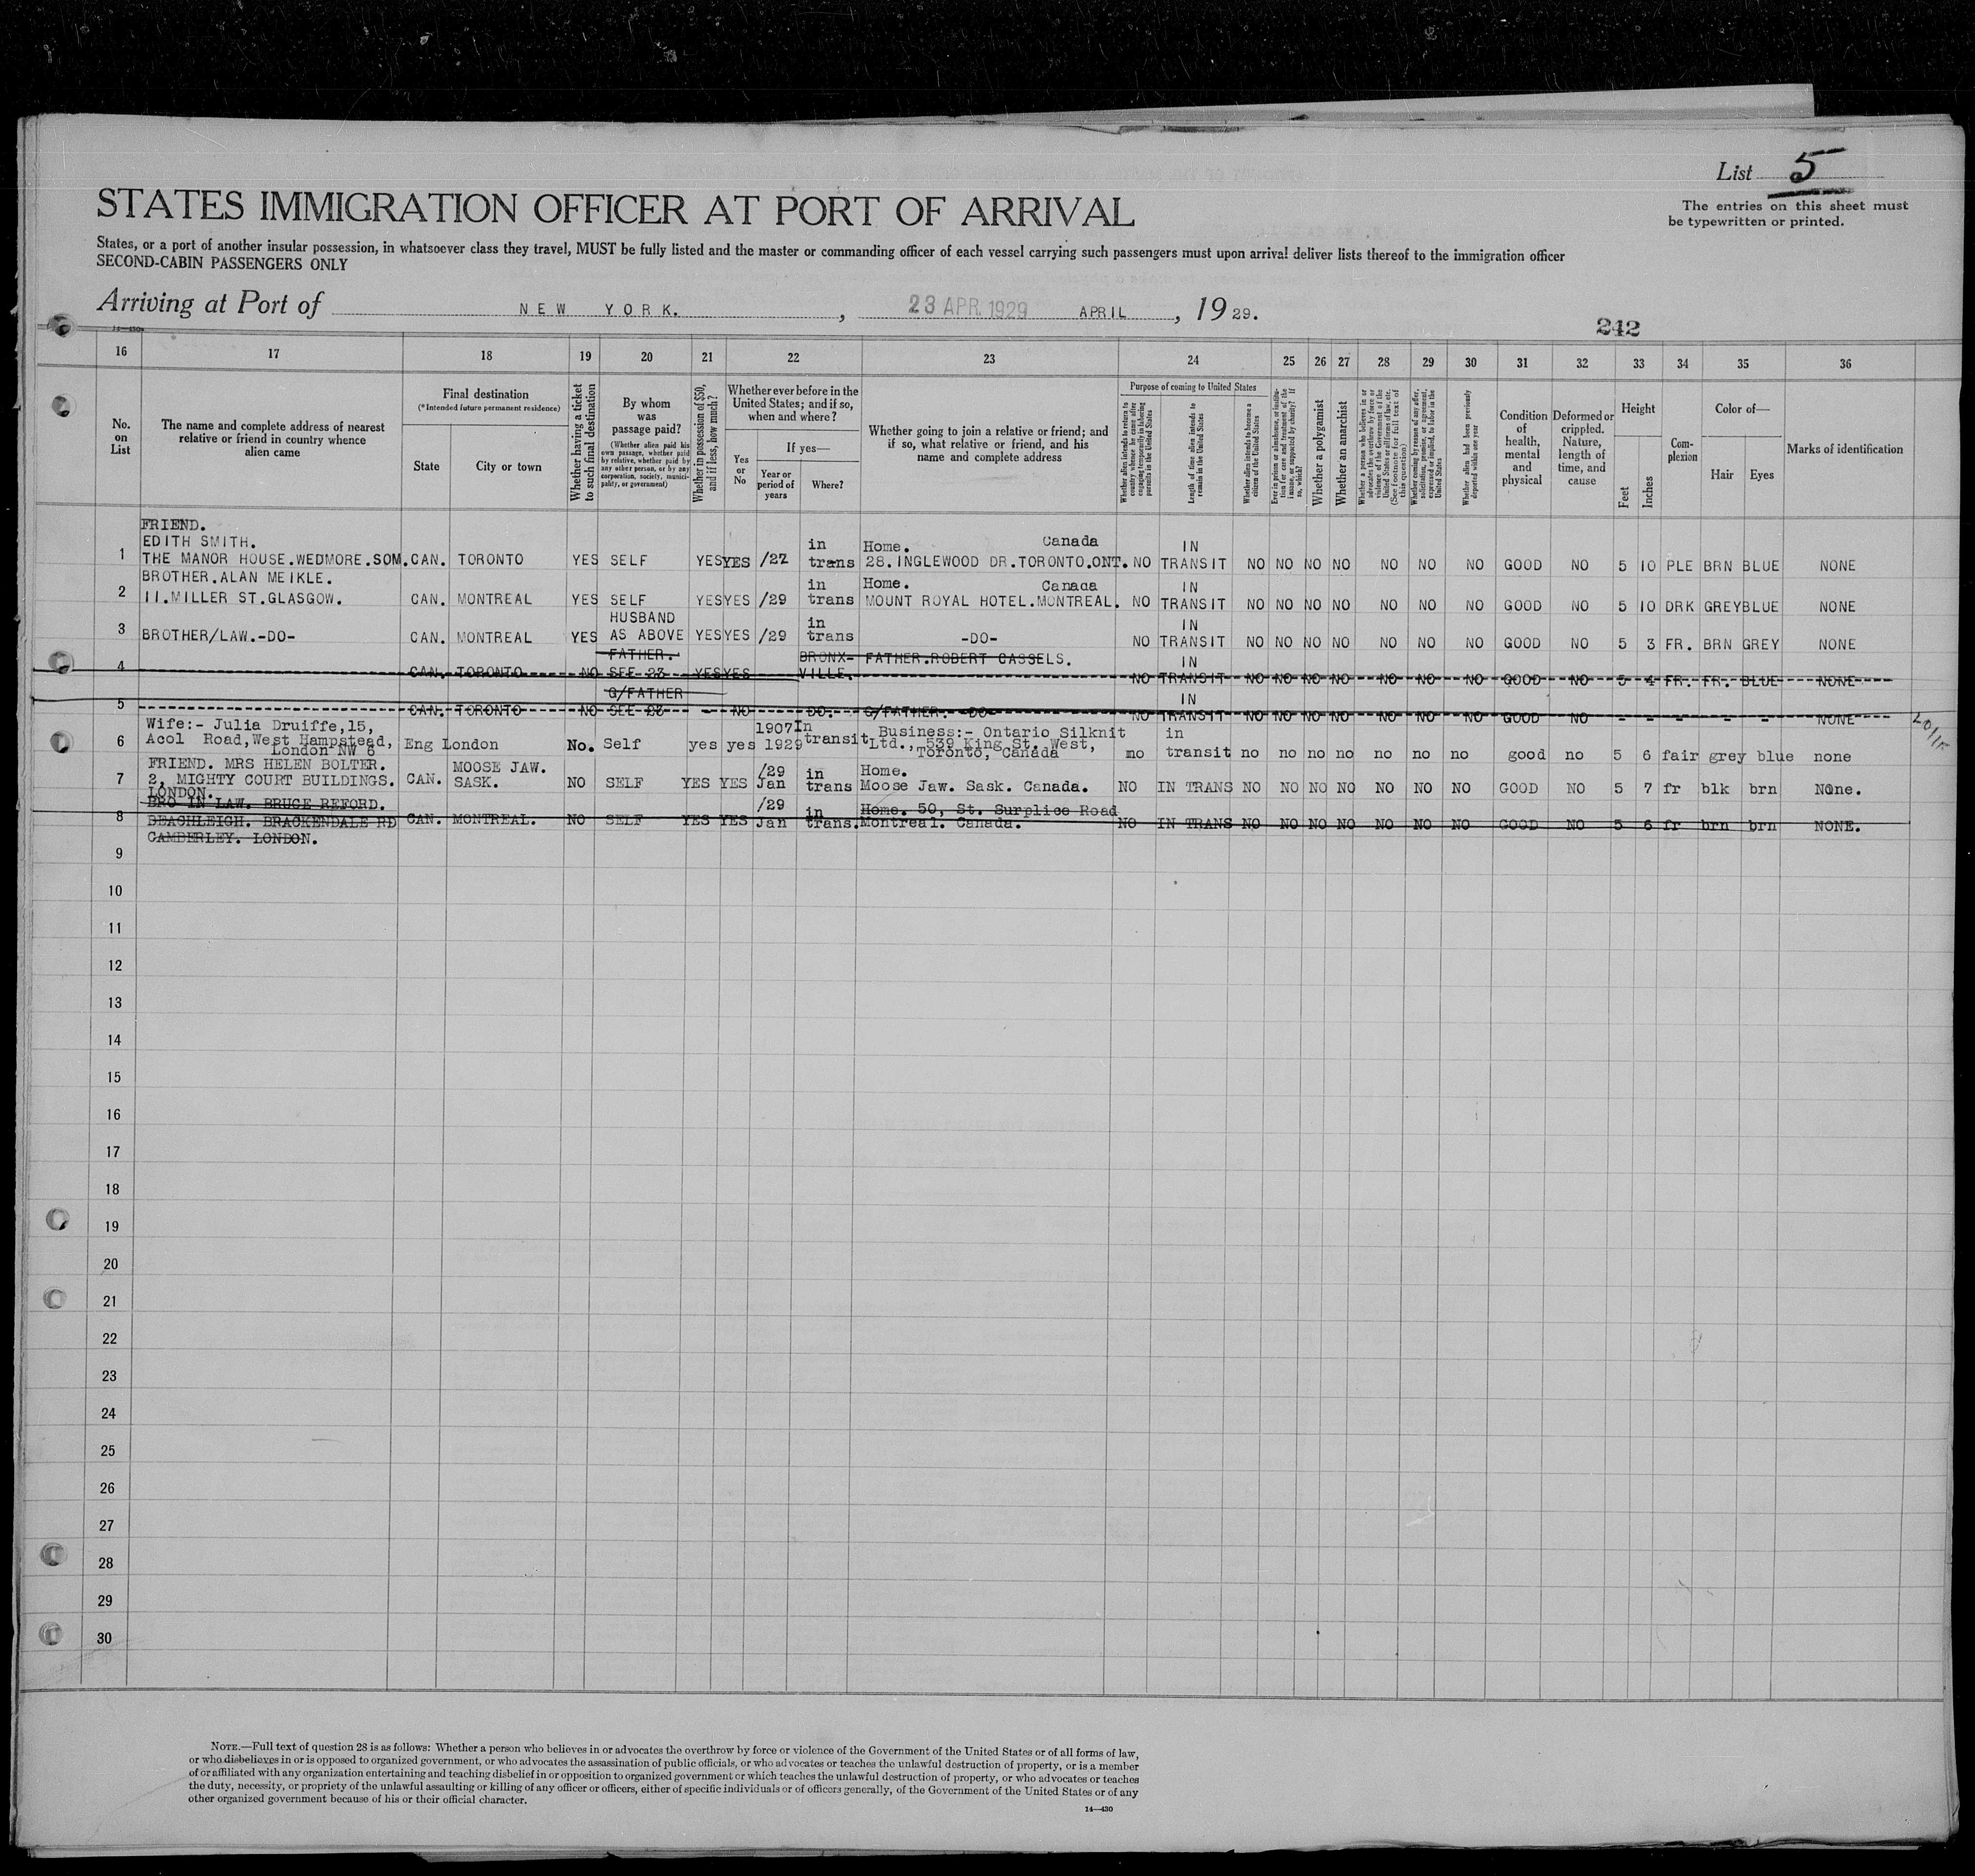 List 5
STATES IMMIGRATION OFFICER AT PORT OF ARRIVAL
The entries on this sheet must
be typewritten or printed.
States, or a port of another insular possession, in whatsoever class they travel, MUST be fully listed and the master or commanding officer of each vessel carrying such passengers must upon arrival deliver lists thereof to the immigration officer
SECOND-CABIN PASSENGERS ONLY
Arriving at Port of NEW YORK. , 23 APR 1929 APRIL , 19 29.
14—430
242
16 17 18 19 20 21 22 23 24 25 26 27 28 29 30 31 32 33 34 35 36
No.
on
List
The name and complete address of nearest
relative or friend in country whence
alien came
Final destination
(*Intended future permanent residence)
State
City or town
Whether having a ticket
to such final destination
By whom
was
passage paid?
(Whether alien paid his
own passage, whether paid
by relative, whether paid by
any other person, or by any
corporation, society, munici-
pality, or government)
Whether in possession of $50,
and if less, how much?
Whether ever before in the
United States; and if so,
when and where?
Yes
or
No
If yes—
Year or
period of
years
Where?
Whether going to join a relative or friend; and
if so, what relative or friend, and his
name and complete address
Purpose of coming to United States
Whether alien intends to return to
country whence he came after
engaging temporarily in laboring
pursuits in the United States
Length of time alien intends to
remain in the United States
Whether alien intends to become a
citizen of the United States
Ever in prison or almshouse, or institu-
tion for care and treatment of the
insane, or supported by charity? If
so, which?
Whether a polygamist
Whether an anarchist
Whether a person who believes in or
advocates the overthrow by force or
violence of the Government of the
United States or all forms of law, etc.
(See footnote for full text of
this question)
Whether coming by reason of any offer,
solicitation, promise, or agreement,
expressed or implied, to labor in the
United States
Whether alien had been previously
deported within one year
Condition
of
health,
mental
and
physical
Deformed or
crippled.
Nature,
length of
time, and
cause
Height
Feet
Inches
Com-
plexion
Color of—
Hair
Eyes
Marks of identification
FRIEND.
EDITH SMITH. in Home. Canada IN
1 THE MANOR HOUSE.WEDMORE.SOM. CAN. TORONTO YES SELF YES YES /27 trans 28.INGLEWOOD DR.TORONTO.ONT. NO TRANSIT NO NO NO NO NO NO NO GOOD NO 5 10 PLE BRN BLUE NONE
BROTHER.ALAN MEIKLE. in Home. Canada IN
2 11.MILLER ST.GLASGOW. CAN. MONTREAL YES SELF YES YES /29 trans MOUNT ROYAL HOTEL.MONTREAL. NO TRANSIT NO NO NO NO NO NO NO GOOD NO 5 10 DRK GREY BLUE NONE
HUSBAND in IN
3 BROTHER/LAW.-DO- CAN. MONTREAL YES AS ABOVE YES YES /29 trans -DO- NO TRANSIT NO NO NO NO NO NO NO GOOD NO 5 3 FR. BRN GREY NONE
FATHER. BRONX- FATHER.ROBERT CASSELS. IN
4 CAN. TORONTO NO SEE 23 YES YES VILLE. NO TRANSIT NO NO NO NO NO NO NO GOOD NO 5 4 FR. FR. BLUE NONE
G/FATHER IN
5 CAN. TORONTO NO SEE 23 - NO DO. G/FATHER. -DO- NO TRANSIT NO NO NO NO NO NO NO GOOD NO - - - - - NONE
Wife:- Julia Druiffe,15, 1907 In Business:- Ontario Silknit in
6 Acol Road,West Hampstead, Eng London No. Self yes yes 1929 transit Ltd., 539 King St. West, mo transit no no no no no no no good no 5 6 fair grey blue none
London NW 6 Toronto, Canada
FRIEND. MRS HELEN BOLTER. MOOSE JAW. /29 in Home.
7 2, MIGHTY COURT BUILDINGS. CAN. SASK. NO SELF YES YES Jan trans Moose Jaw. Sask. Canada. NO IN TRANS NO NO NO NO NO NO NO GOOD NO 5 7 fr blk brn None.
LONDON.
BRO IN LAW. BRUCE REFORD. /29 in Home. 50, St. Surplice Road
8 BEACHLEIGH. BRACKENDALE RD CAN. MONTREAL. NO SELF YES YES Jan trans. Montreal. Canada. NO IN TRANS NO NO NO NO NO NO NO GOOD NO 5 6 fr brn brn NONE.
CAMBERLEY. LONDON.
9
10
11
12
13
14
15
16
17
18
19
20
21
22
23
24
25
26
27
28
29
30
NOTE.—Full text of question 28 is as follows: Whether a person who believes in or advocates the overthrow by force or violence of the Government of the United States or of all forms of law,
or who disbelieves in or is opposed to organized government, or who advocates the assassination of public officials, or who advocates or teaches the unlawful destruction of property, or is a member
of or affiliated with any organization entertaining and teaching disbelief in or opposition to organized government or which teaches the unlawful destruction of property, or who advocates or teaches
the duty, necessity, or propriety of the unlawful assaulting or killing of any officer or officers, either of specific individuals or of officers generally, of the Government of the United States or of any
other organized government because of his or their official character.
14—430